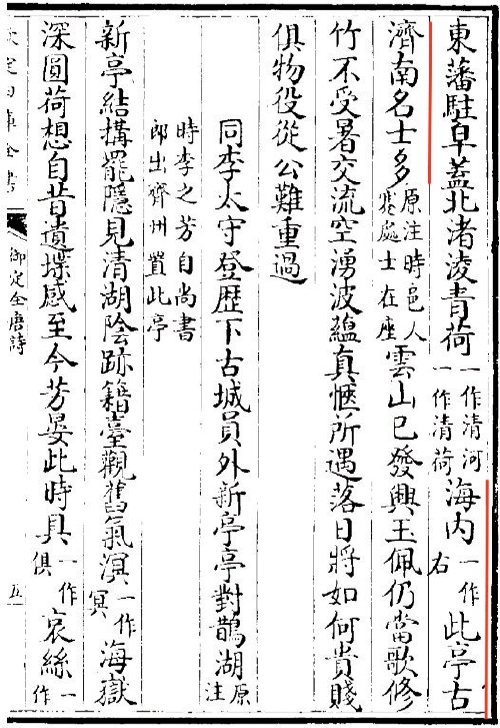 東藩駐皁蓋北渚淩青荷一作清河一作清荷海内一作右此亭古
濟南名士多原注時邑人蹇處士在座雲山已發興玉佩仍當歌修
竹不受暑交流空湧波蘊真愜所遇落日將如何貴賤
俱物役從公難重過
同李太守登歴下古城員外新亭亭對鵲湖原注
時李之芳自尚書
郎出齊州置此亭
新亭結構罷隱見清湖陰跡籍臺觀舊氣溟一作冥海嶽
深圓荷想自昔遺堞感至今芳晏此時具一作俱哀絲一作
欽定四庫全書
御定全唐詩
五